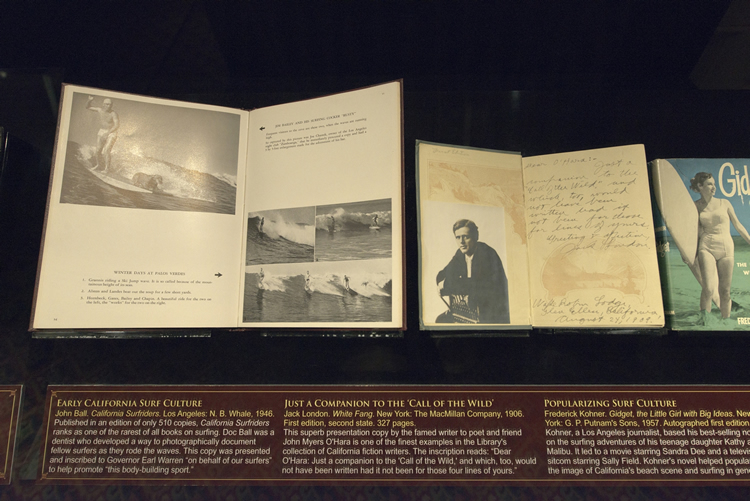 JIM BAILEY AND HIS SURFING COCKER "RUSTY"
WINTER DAYS AT PALOS VERDES
Dear O'Hara:— Just a
companion to the
"Call of the Wild" and
which, too, would
not have been
written had it
not been for those
four lines of yours.
Jack London
Wake Robin Lodge,
Glen Ellen, California
Gid
THE
FRED
EARLY CALIFORNIA SURF CULTURE
John Ball. California Surfriders. Los Angeles: N. B. Whale, 1946.
Published in an edition of only 510 copies, California Surfriders
ranks as one of the rarest of all books on surfing. Doc Ball was a
dentist who developed a way to photographically document
fellow surfers as they rode the waves. This copy was presented
and inscribed to Governor Earl Warren "on behalf of our surfers"
to help promote "this body-building sport."
JUST A COMPANION TO THE 'CALL OF THE WILD'
Jack London. White Fang. New York: The MacMillan Company, 1906.
First edition, second state. 327 pages.
This superb presentation copy by the famed writer to poet and friend
John Myers O'Hara is one of the finest examples in the Library's
collection of California fiction writers. The inscription reads: "Dear
O'Hara: Just a companion to the 'Call of the Wild,' and which, too, would
not have been written had it not been for those four lines of yours."
POPULARIZING SURF CULTURE
Frederick Kohner. Gidget, the Little Girl with Big Ideas. New
York: G. P. Putnam's Sons, 1957. Autographed first edition.
Kohner, a Los Angeles journalist, based his best-selling no
on the surfing adventures of his teenage daughter Kathy a
Malibu. It led to a movie starring Sandra Dee and a televis
sitcom starring Sally Field. Kohner's novel helped popula
the image of California's beach scene and surfing in gen